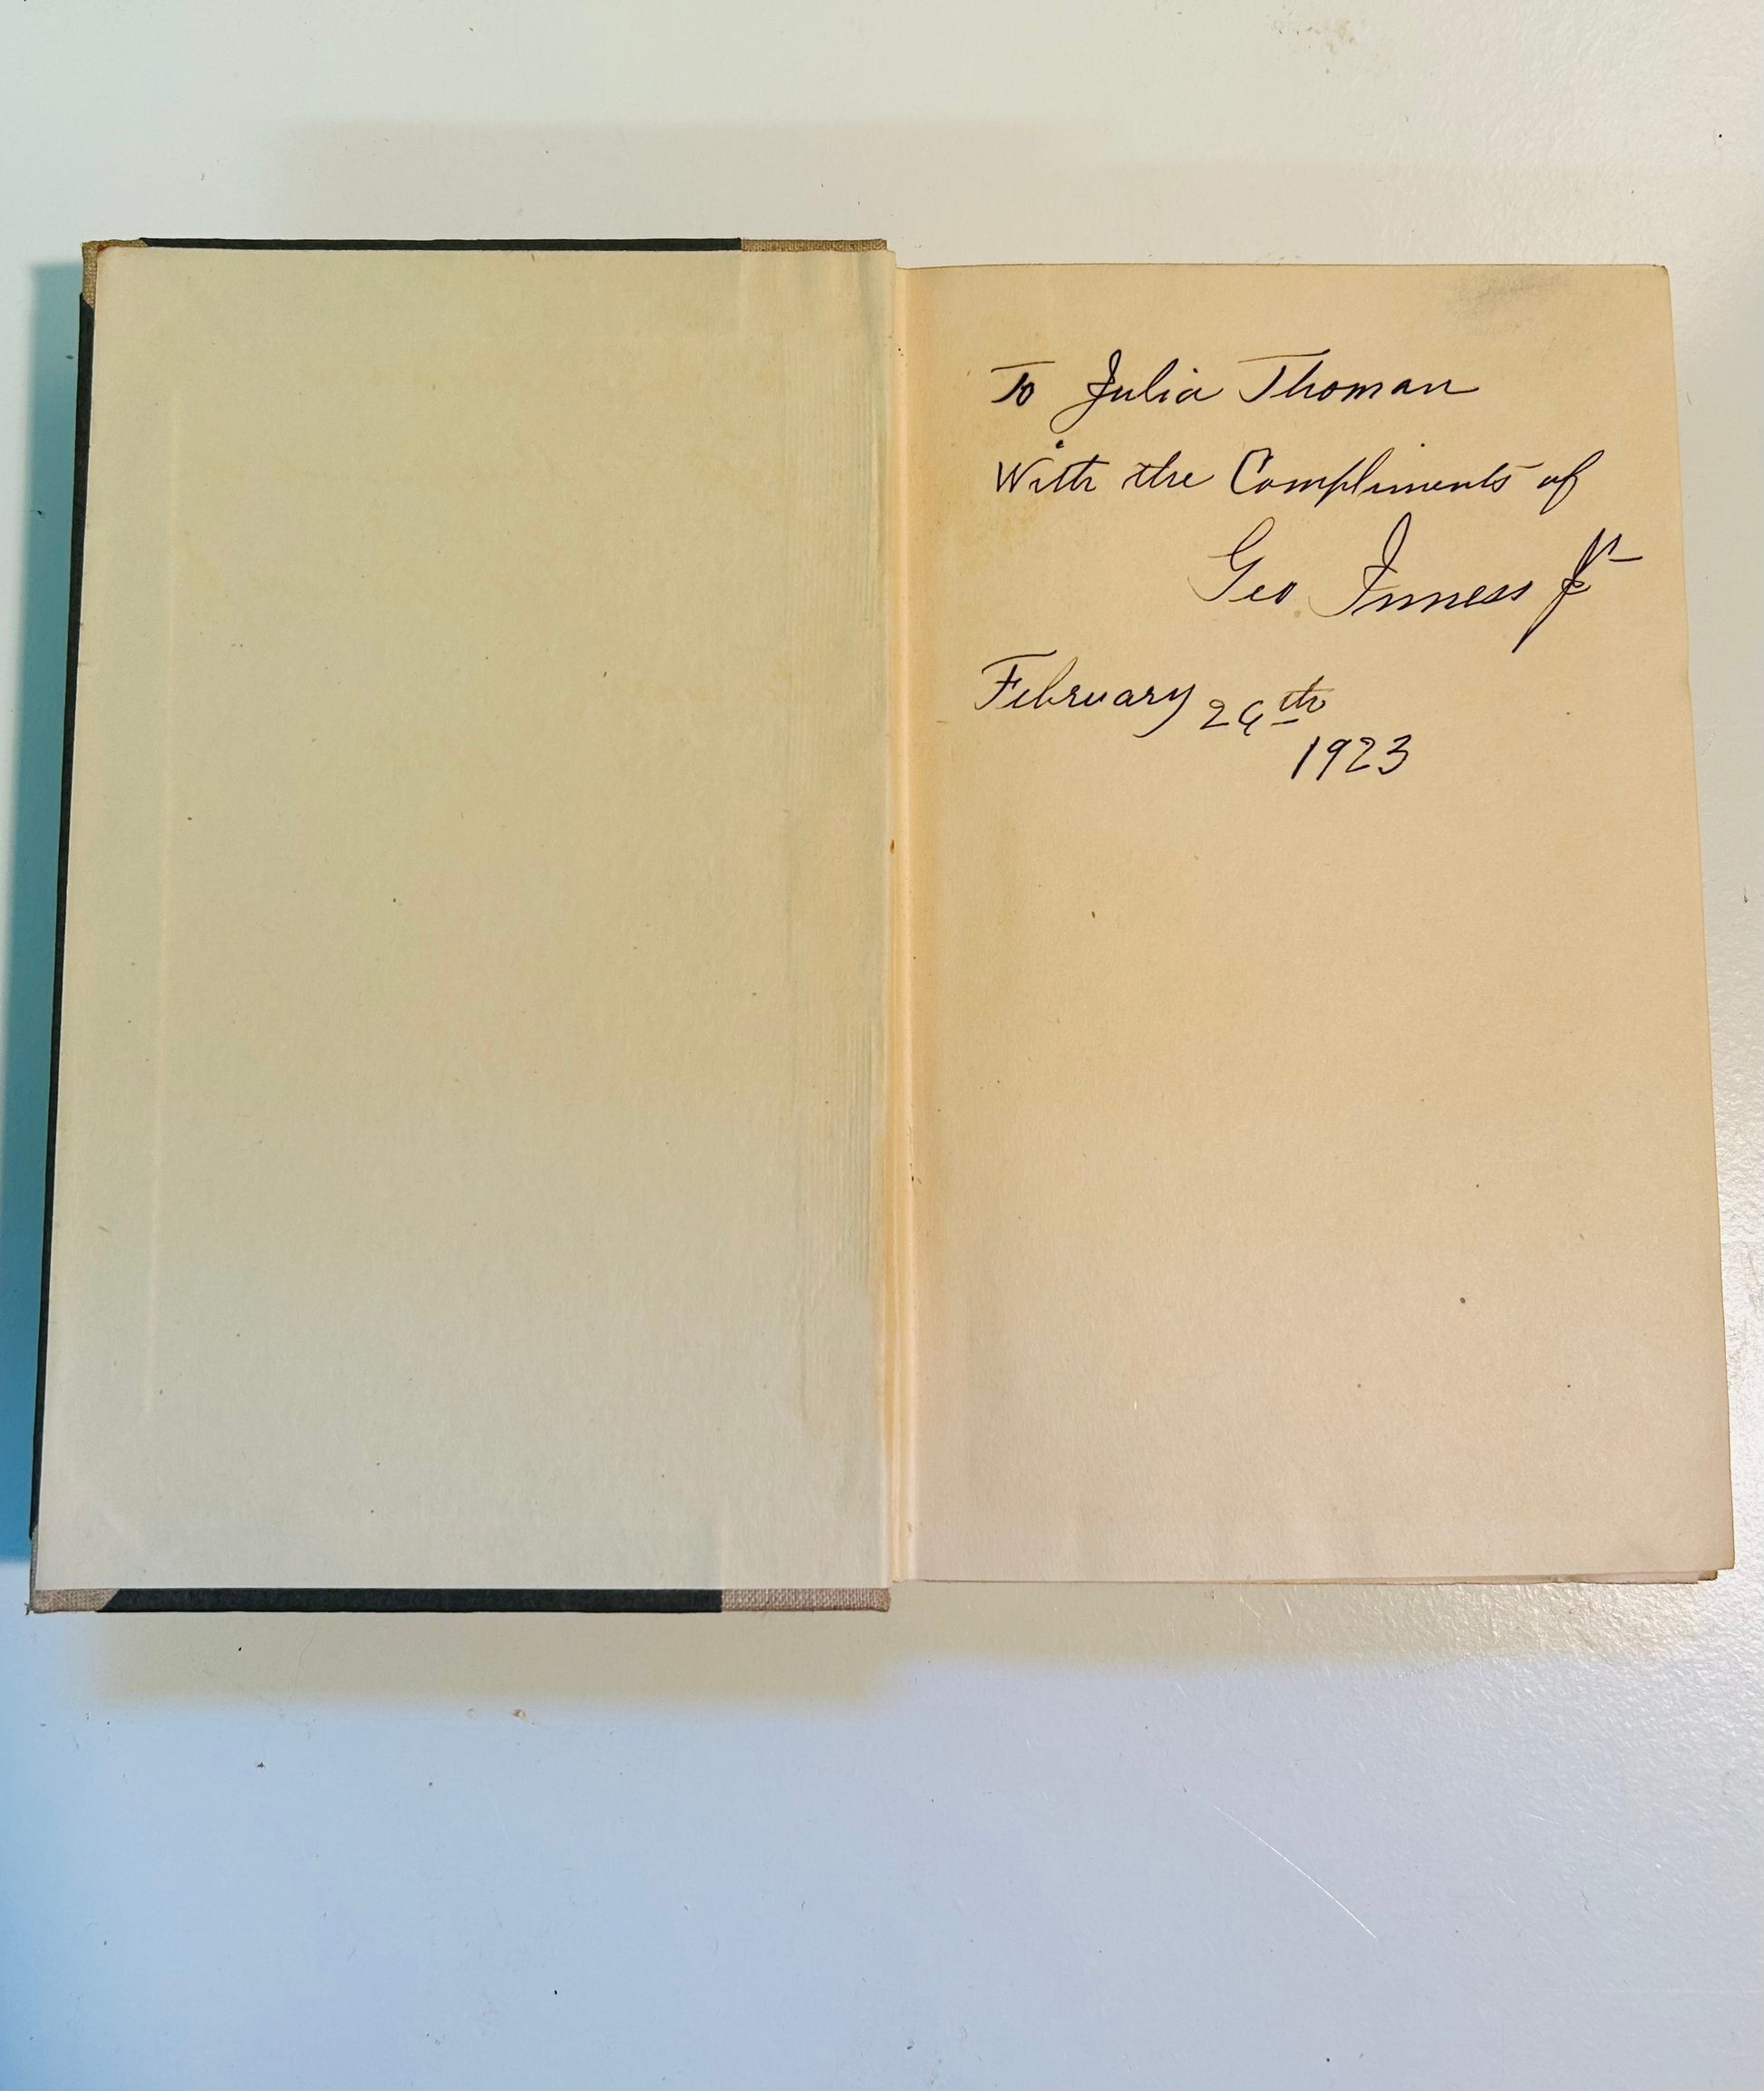 To Julia Thoman
With the Compliments of
Geo. Inness Jr
February
1923